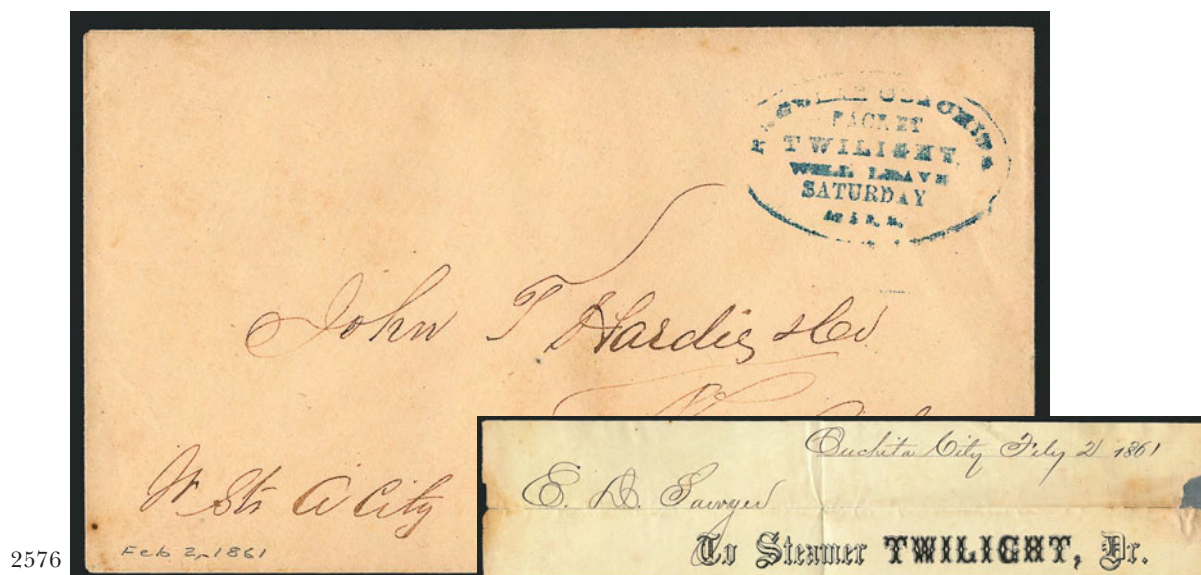 REGULAR OUACHITA
PACKET
TWILIGHT,
WILL LEAVE
SATURDAY
At 5 P. M.
John T Hardie & Co
Str City
Feb 2, 1861
2576
Ouchita City Feby 2 1861
E. D. Sawyer
To Steamer TWILIGHT, Dr.